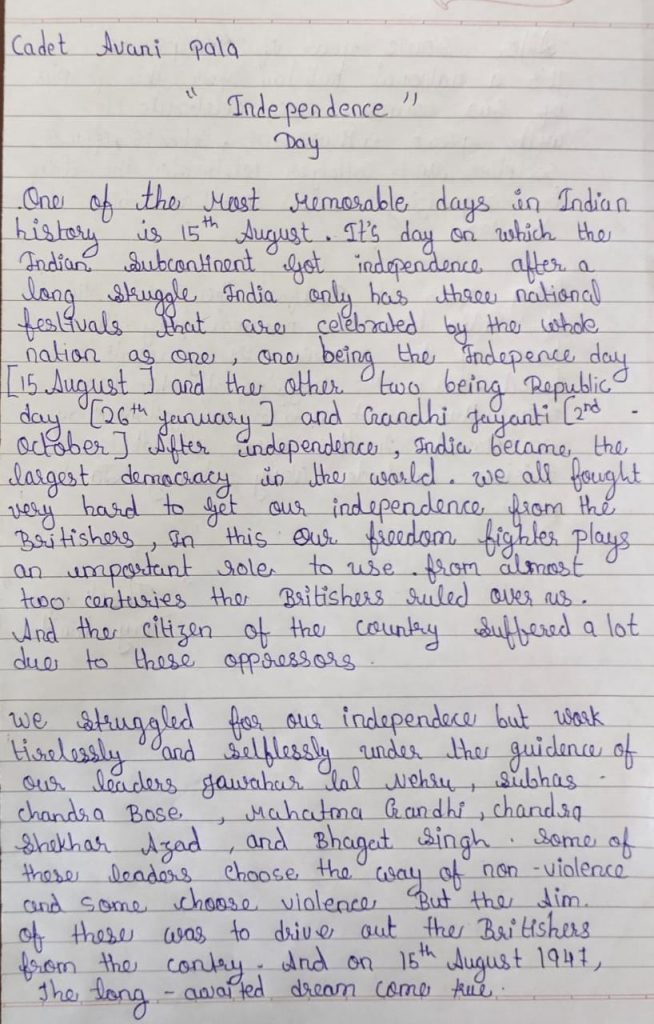 Cadet Avani Pala
" Independence "
Day
One of the Most Memorable days in Indian
history is 15th August. It's day on which the
Indian Subcontinent Got independence after a
long struggle India only has three national
festivals that are celebrated by the whole
nation as one, one being the Indepence day
[15 August] and the other two being Republic
day [26th january] and Gandhi Jayanti [2nd -
October] After independence, India became the
largest democracy in the world. we all fought
very hard to get our independence from the
Britishers, In this our freedom fighter plays
an important role to use. from almost
two centuries the Britishers ruled over us.
And the citizen of the country suffered a lot
due to these oppressors.
we struggled for our independece but work
tirelessly and selflessly under the guidence of
our leaders jawahar lal Nehru, Subhas -
chandra Bose, Mahatma Gandhi, chandra
Shekhar Azad, and Bhagat Singh. Some of
these leaders choose the way of non-violence
and some choose violence But the Aim.
of these was to drive out the Britishers
from the contry. And on 15th August 1947,
The long-awaited dream come true.